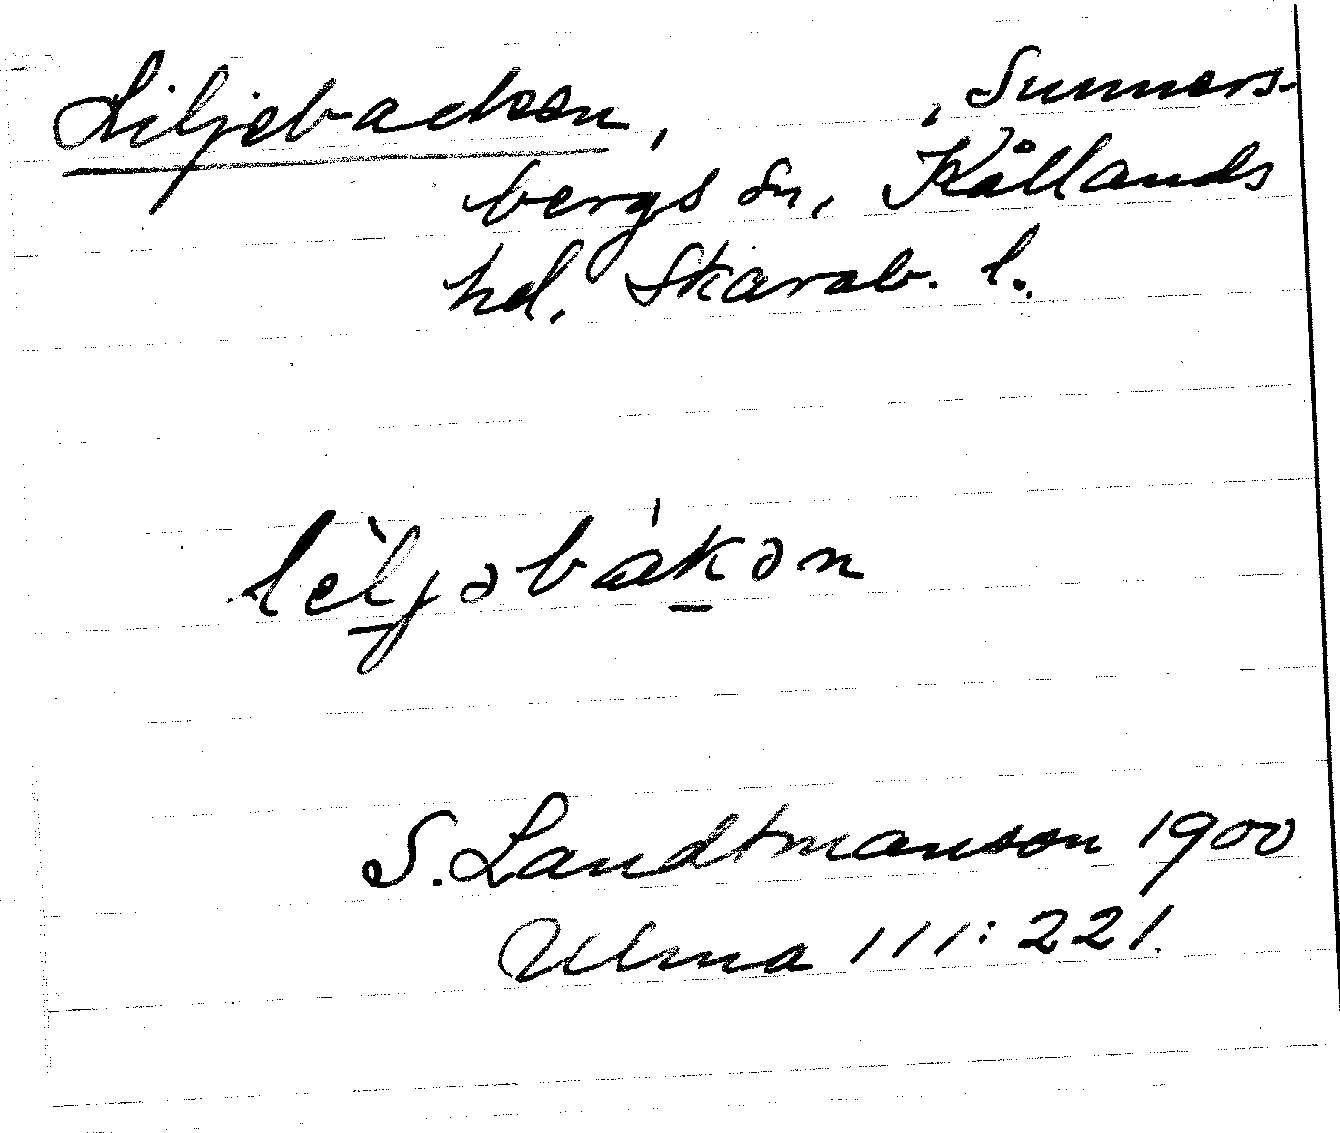 Liljebacken, , Sunners-
bergs sn, Kållands
hd. Skarab. l.
lèljəbákən
S. Landtmanson 1900
Ulma 111:221.